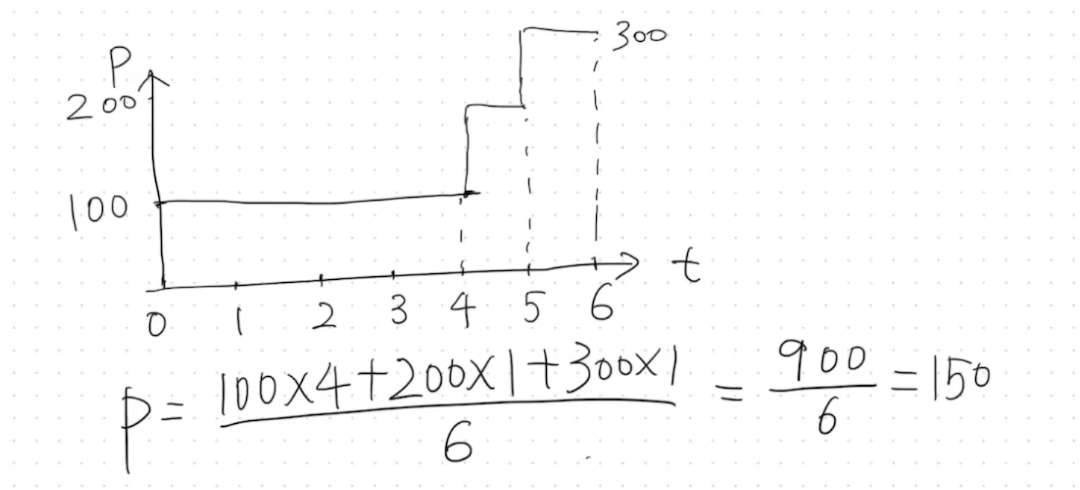 P
300
200
100
t
0 1 2 3 4 5 6
P = (100×4+200×1+300×1)/6 = 900/6 = 150